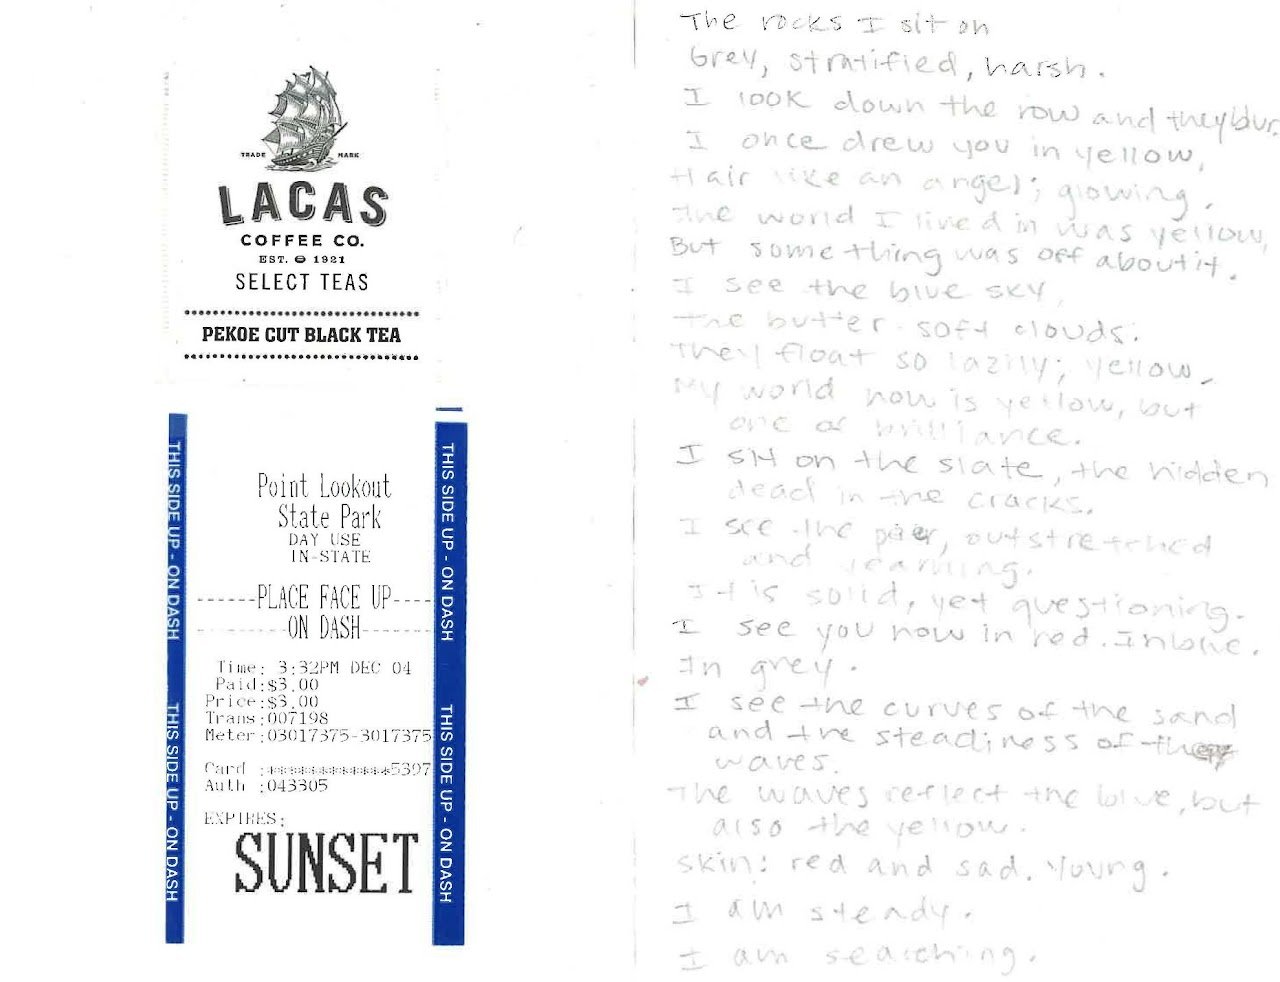 TRADE MARK
LACAS
COFFEE CO.
EST. 1921
SELECT TEAS
PEKOE CUT BLACK TEA
THIS SIDE UP - ON DASH
THIS SIDE UP - ON DASH
THIS SIDE UP - ON DASH
THIS SIDE UP - ON DASH
Point Lookout
State Park
DAY USE
IN-STATE
------PLACE FACE UP----
---------ON DASH-------
Time: 3:32PM DEC 04
Paid:$3.00
Price:$3.00
Trans:007198
Meter:03017375-3017375
Card :************5397
Auth :043305
EXPIRES:
SUNSET
The rocks I sit on
Grey, stratified, harsh.
I look down the row and they blur.
I once drew you in yellow,
Hair like an angel; glowing.
The world I lived in was yellow,
But something was off about it.
I see the blue sky,
The butter soft clouds.
They float so lazily; yellow.
My world now is yellow, but
one of brilliance.
I sit on the slate, the hidden
dead in the cracks.
I see the pier, outstretched
and yearning.
It is solid, yet questioning.
I see you now in red. In blue.
In grey.
I see the curves of the sand
and the steadiness of the
waves.
The waves reflect the blue, but
also the yellow.
Skin: red and sad. Young.
I am steady.
I am searching.